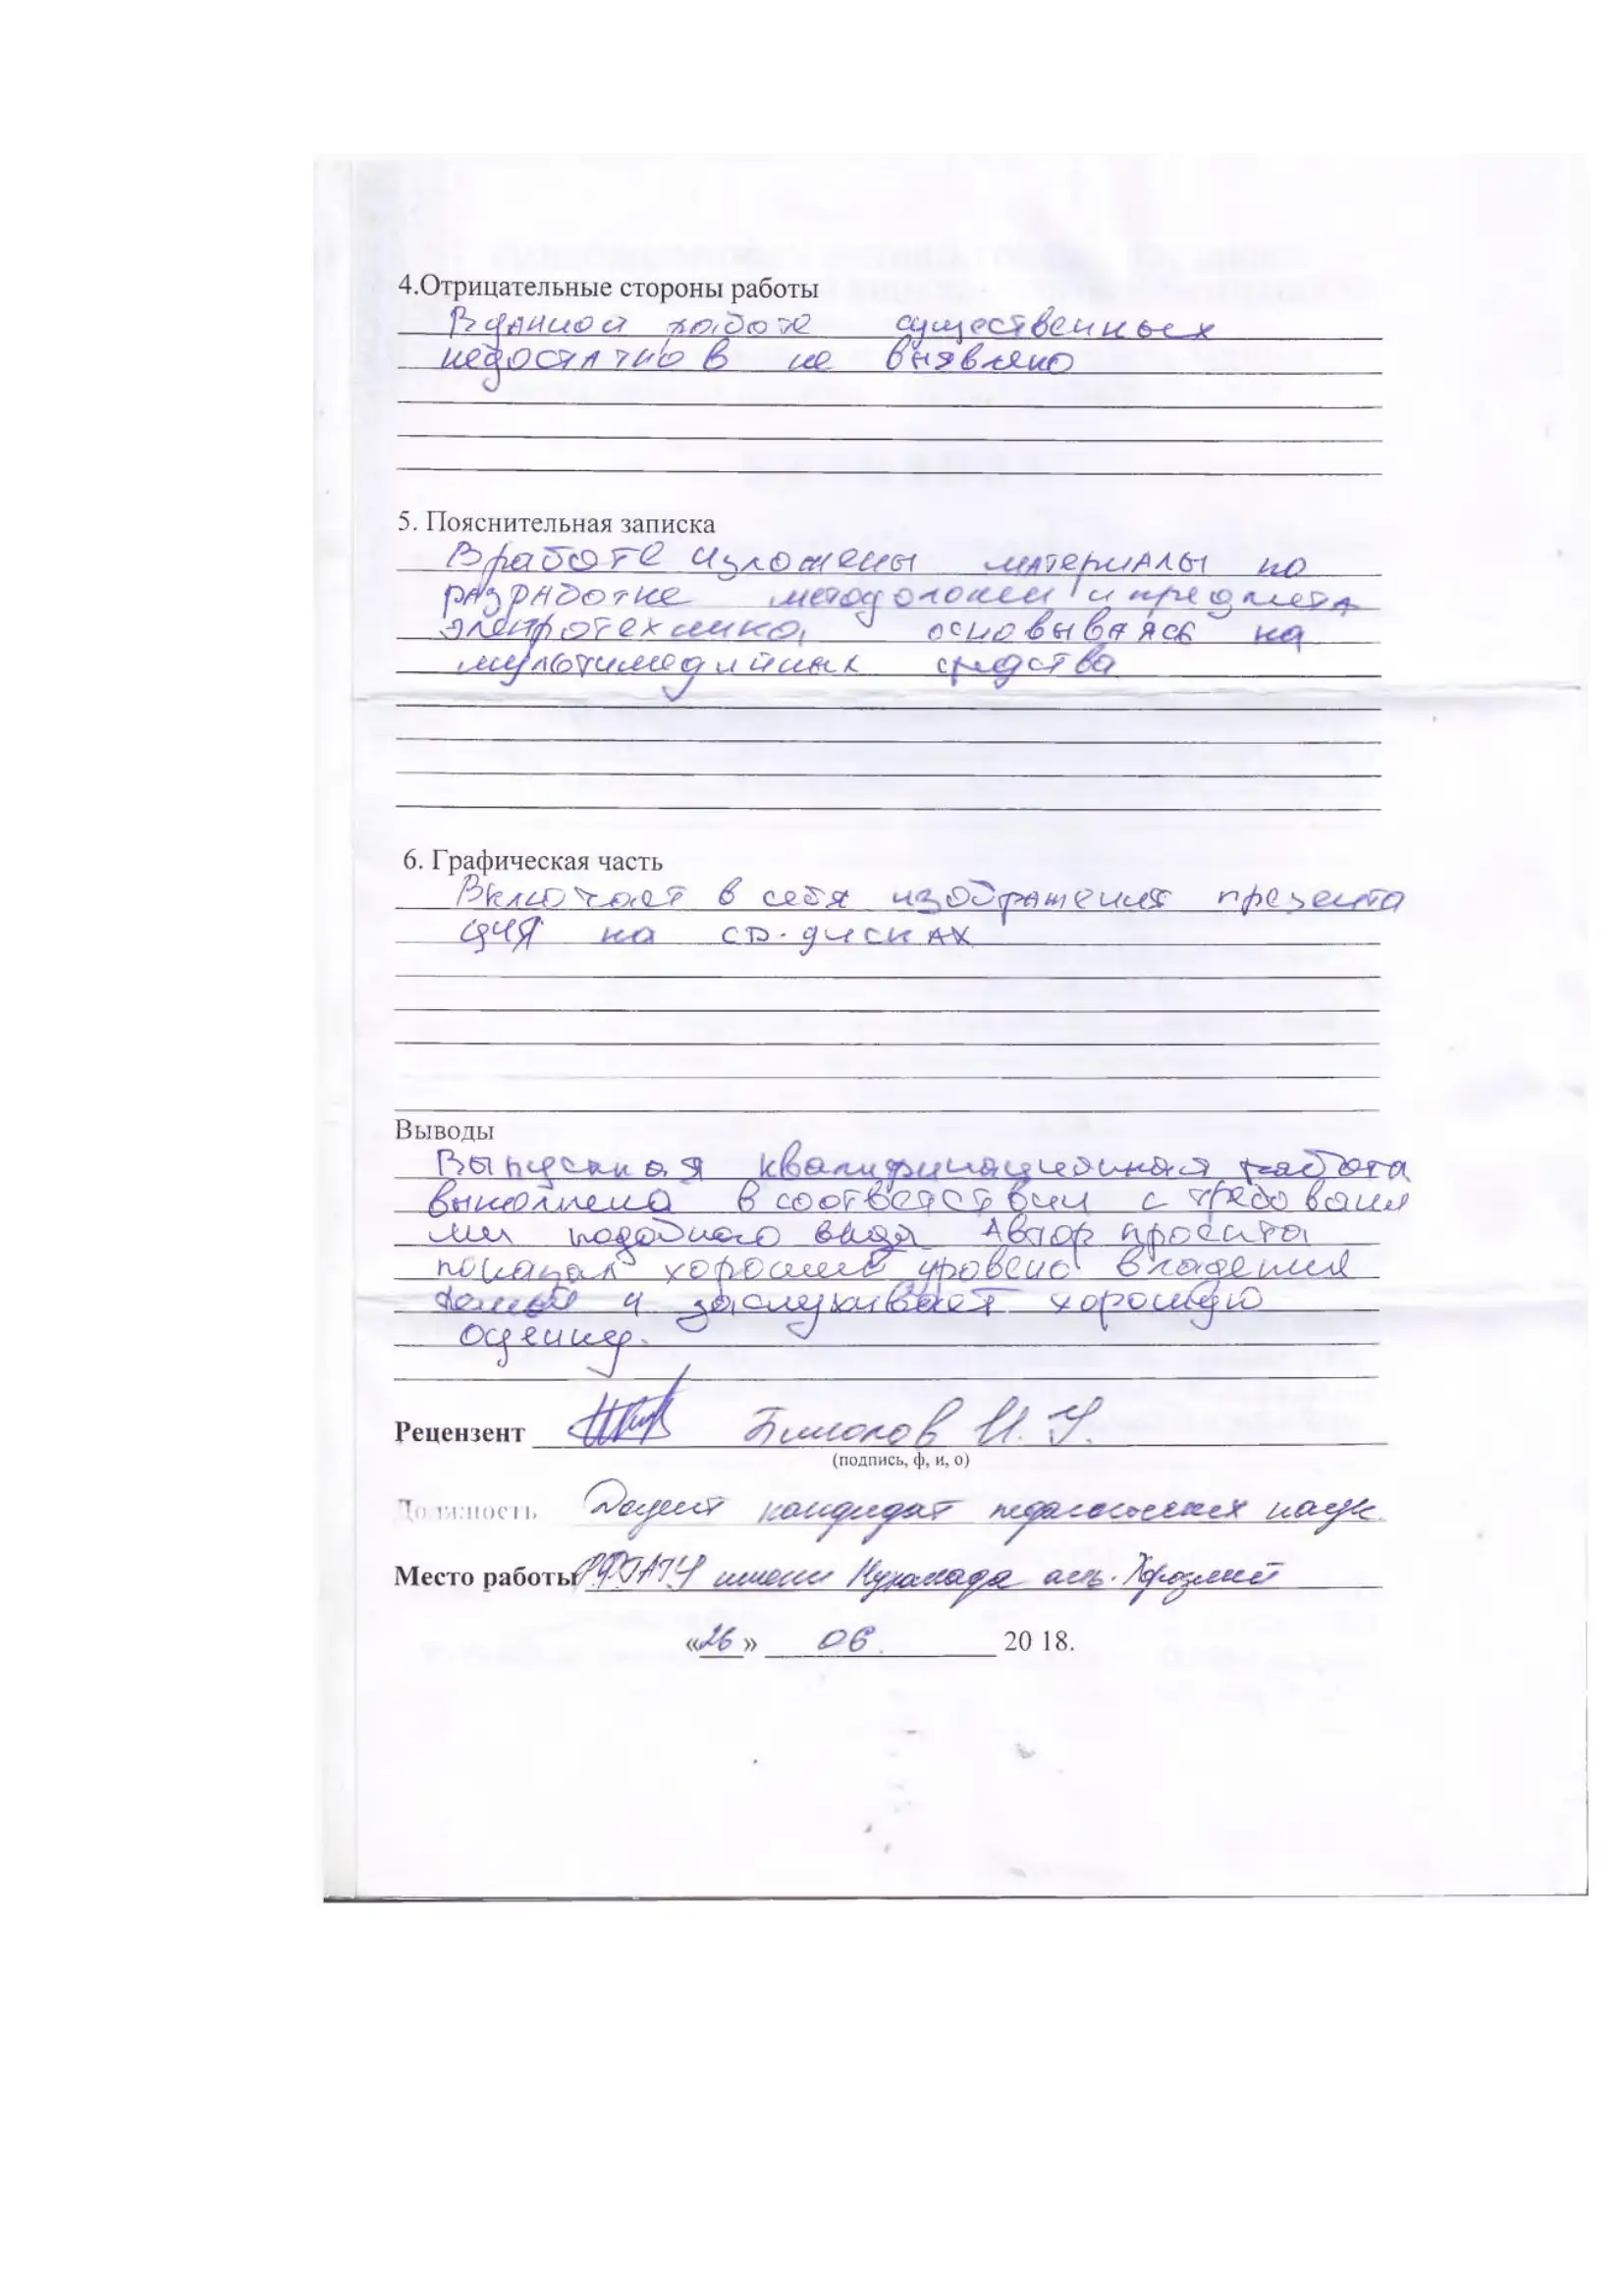 4.Отрицательные стороны работы
В данной работе существенных
недостатков не выявлено
5. Пояснительная записка
В работе изложены материалы по
разработке предмета
электротехника, основываясь на
мультимедийных средства
6. Графическая часть
Включает в себя изображения презента
ция на CD-дисках
Выводы
Выпускная квалификационная работа
выполнена в соответствии с требовани
ми подобного вида Автор проекта
показал хороший уровень владения
и заслуживает хорошую
оценку.
Рецензент И. У.
(подпись, ф, и, о)
Должность Доцент кандидат педагогических наук
Место работы имени Мухаммада Хоразмий
«26» 06. 20 18.